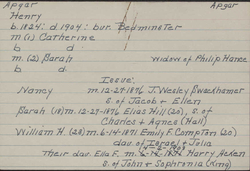 Apgar Apgar
Henry
b. 1824: d. 1904: bur. Bedminster
m. (1) Catherine
b d.
m. (2) Sarah widow of Philip Hance
b d.
Issue:
Nancy m. 12-27-1876 J. Wesley
S. of Jacob & Ellen
Sarah (18) m. 12-27-1876 Elias Hill (20), S. of
Charles & Agnes (Hall)
William H. (20) m. 6-14-1871 Emily F. Compton (20)
dau. of Israel & Julia
Their dau. Ella F. m. Harry Acken
S. of John & Sophronia (King)